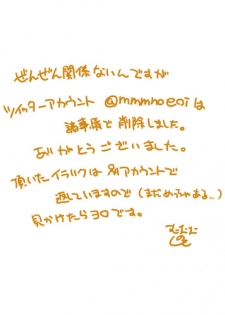 ぜんぜん関係ないんですが
ツイッターアカウント @mmmnoeoiは
諸事情で削除しました。
ありがとうございました。
頂いたイラリクは 別アカウントで
返していますので (まだめっちゃある..)
見かけたらヨロです。